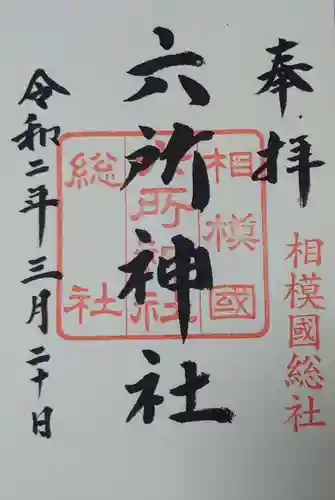 奉拝
相模國総社
相模國
六所神社
総社
六所神社
令和二年三月二十日